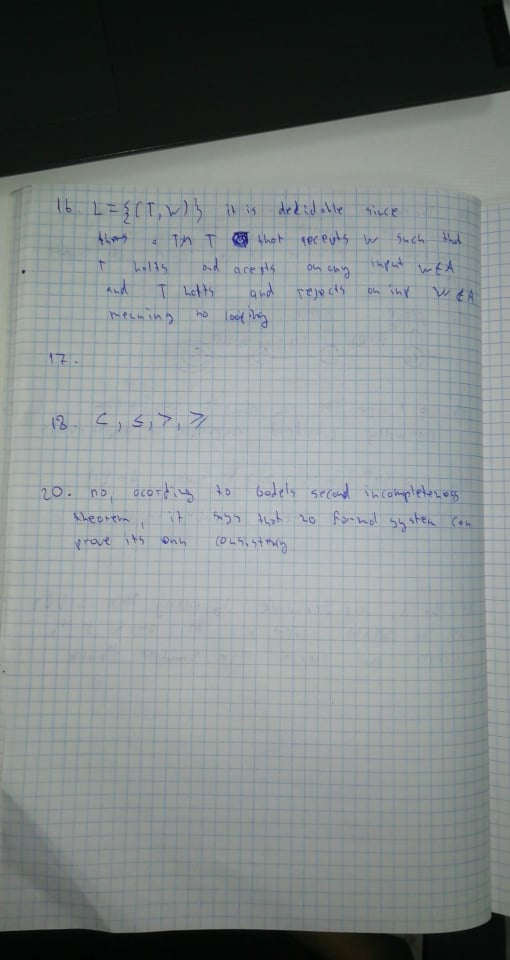 16. L = {(T, W)} it is dedidable since
a TM T that accepts w such that
T halts and acepts on any input w ∈ A
and T halts and rejects on inp W ∉ A
meaning no looping
17.
18. <, ≤, >, ≥
20. no, acording to Godels second incompleteness
theorem, it says that no formal system can
prove its own consistency